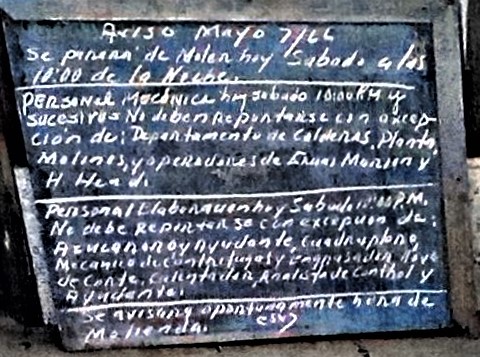 Aviso Mayo 7/66
Se parara de Moler hoy Sabado a las
10:00 de la Noche.
PERSONAL Mecanica hoy sabado 10:00 P.M y
sucesivos No deben Reportarse con excep-
ción de: Departamento de Calderas, Planta,
Molinos, y operadores de
H. Head.
Personal Elaboracion hoy Sabado P.M.
No debe Reportarse con excepcion de:
Azucarero y Ayudante, Cuadruplero,
Mecanico de centrifugas y Engrasador, llave
de Corte, Calentador, Analista de Control y
Ayudante.
Se avisara oportunamente hora de
Molienda.